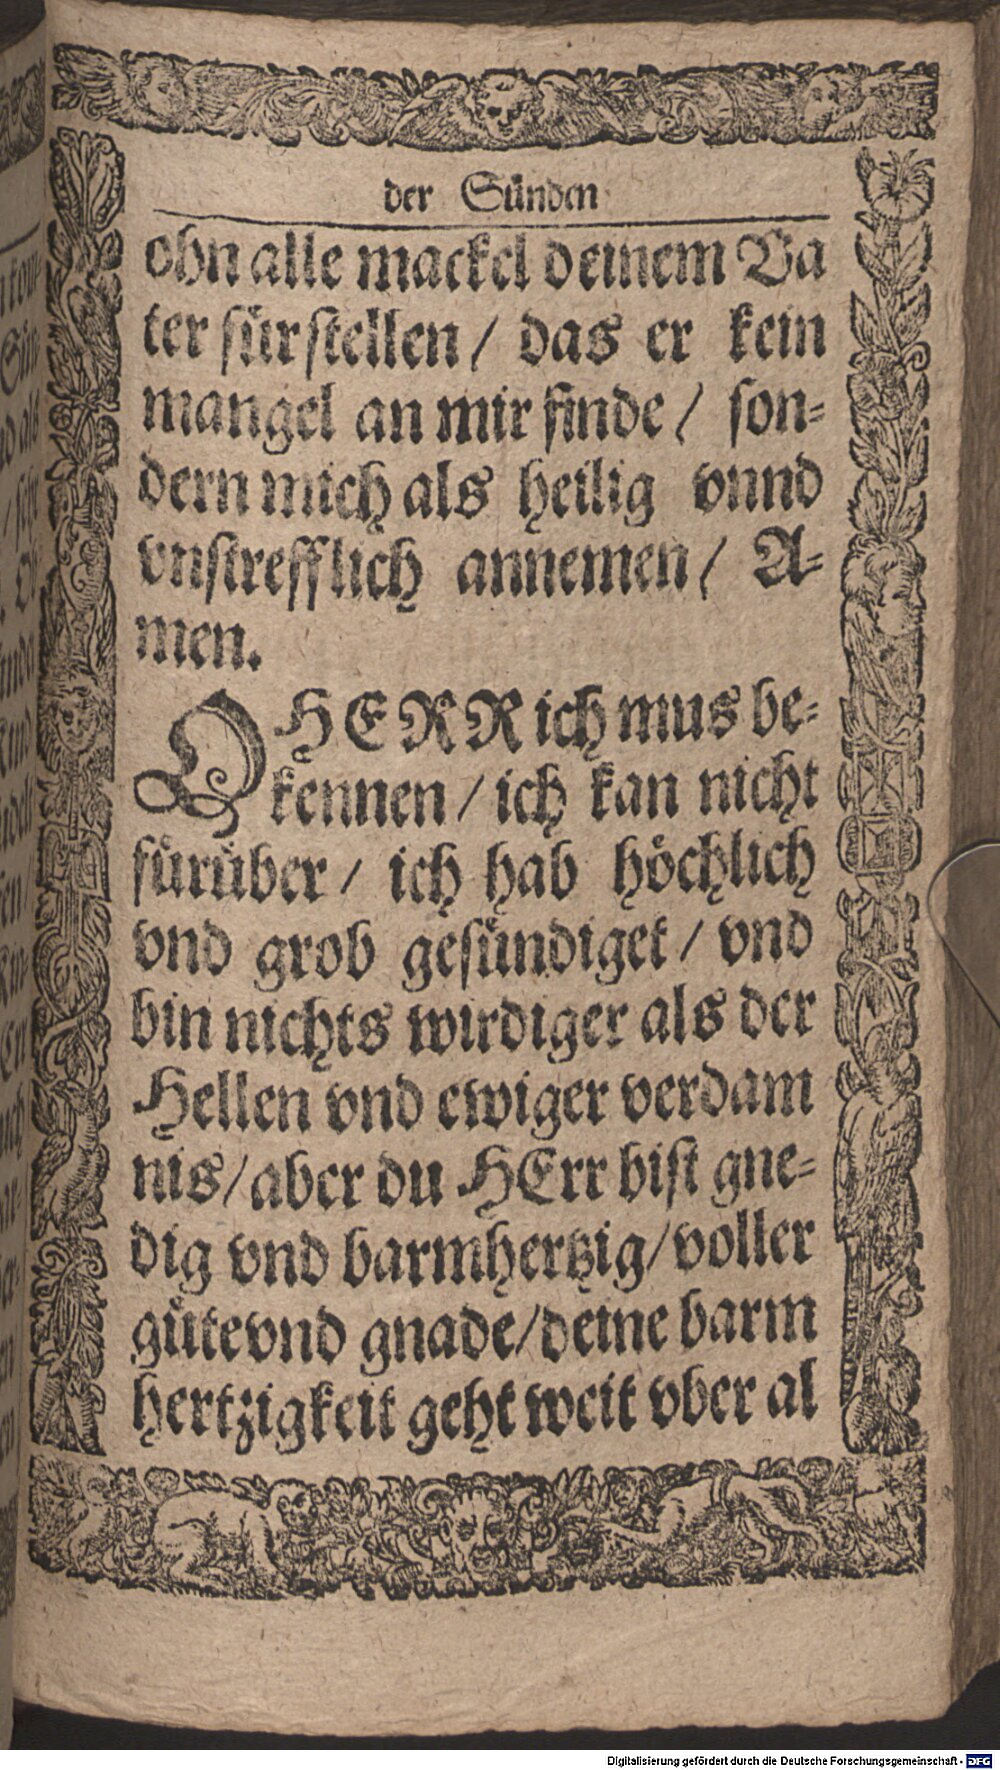 der Sünden
ohn alle mackel deinem Va
ter fürstellen / das er kein
mangel an mir finde / son-
dern mich als heilig vnnd
vnstrefflich annemen / A-
men.
O HERR ich mus be-
kennen / ich kan nicht
fürüber / ich hab höchlich
vnd grob gesündiget / vnd
bin nichts wirdiger als der
Hellen vnd ewiger verdam
nis / aber du HErr bist gne-
dig vnd barmhertzig / voller
gütevnd gnade / deine barm
hertzigkeit geht weit vber al
Digitalisierung gefördert durch die Deutsche Forschungsgemeinschaft - DFG